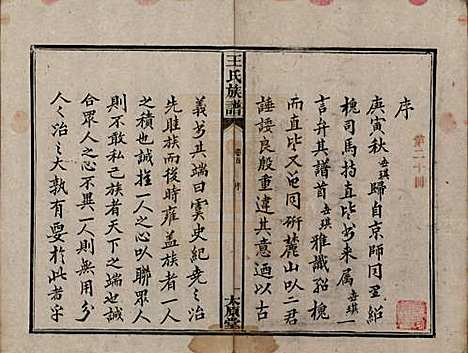 序
庚寅秋世琪歸自京師同里紹
槐司馬持直毗書來属世琪一
言弁其譜首世琪雅識
而直毗又曾同研麓山以二君
諈諉良殷重違其意迺以古
王氏族譜
卷首
序
一
太原堂
義書其端曰虞史紀堯之
先睦族而後時雍蓋族者一人
之積也誠推一人之心以聯眾人
則不敢私己族者天下之端也誠
合眾人之心不異一人則無用分
人人之治之大孰有要於此者乎
第二十冊